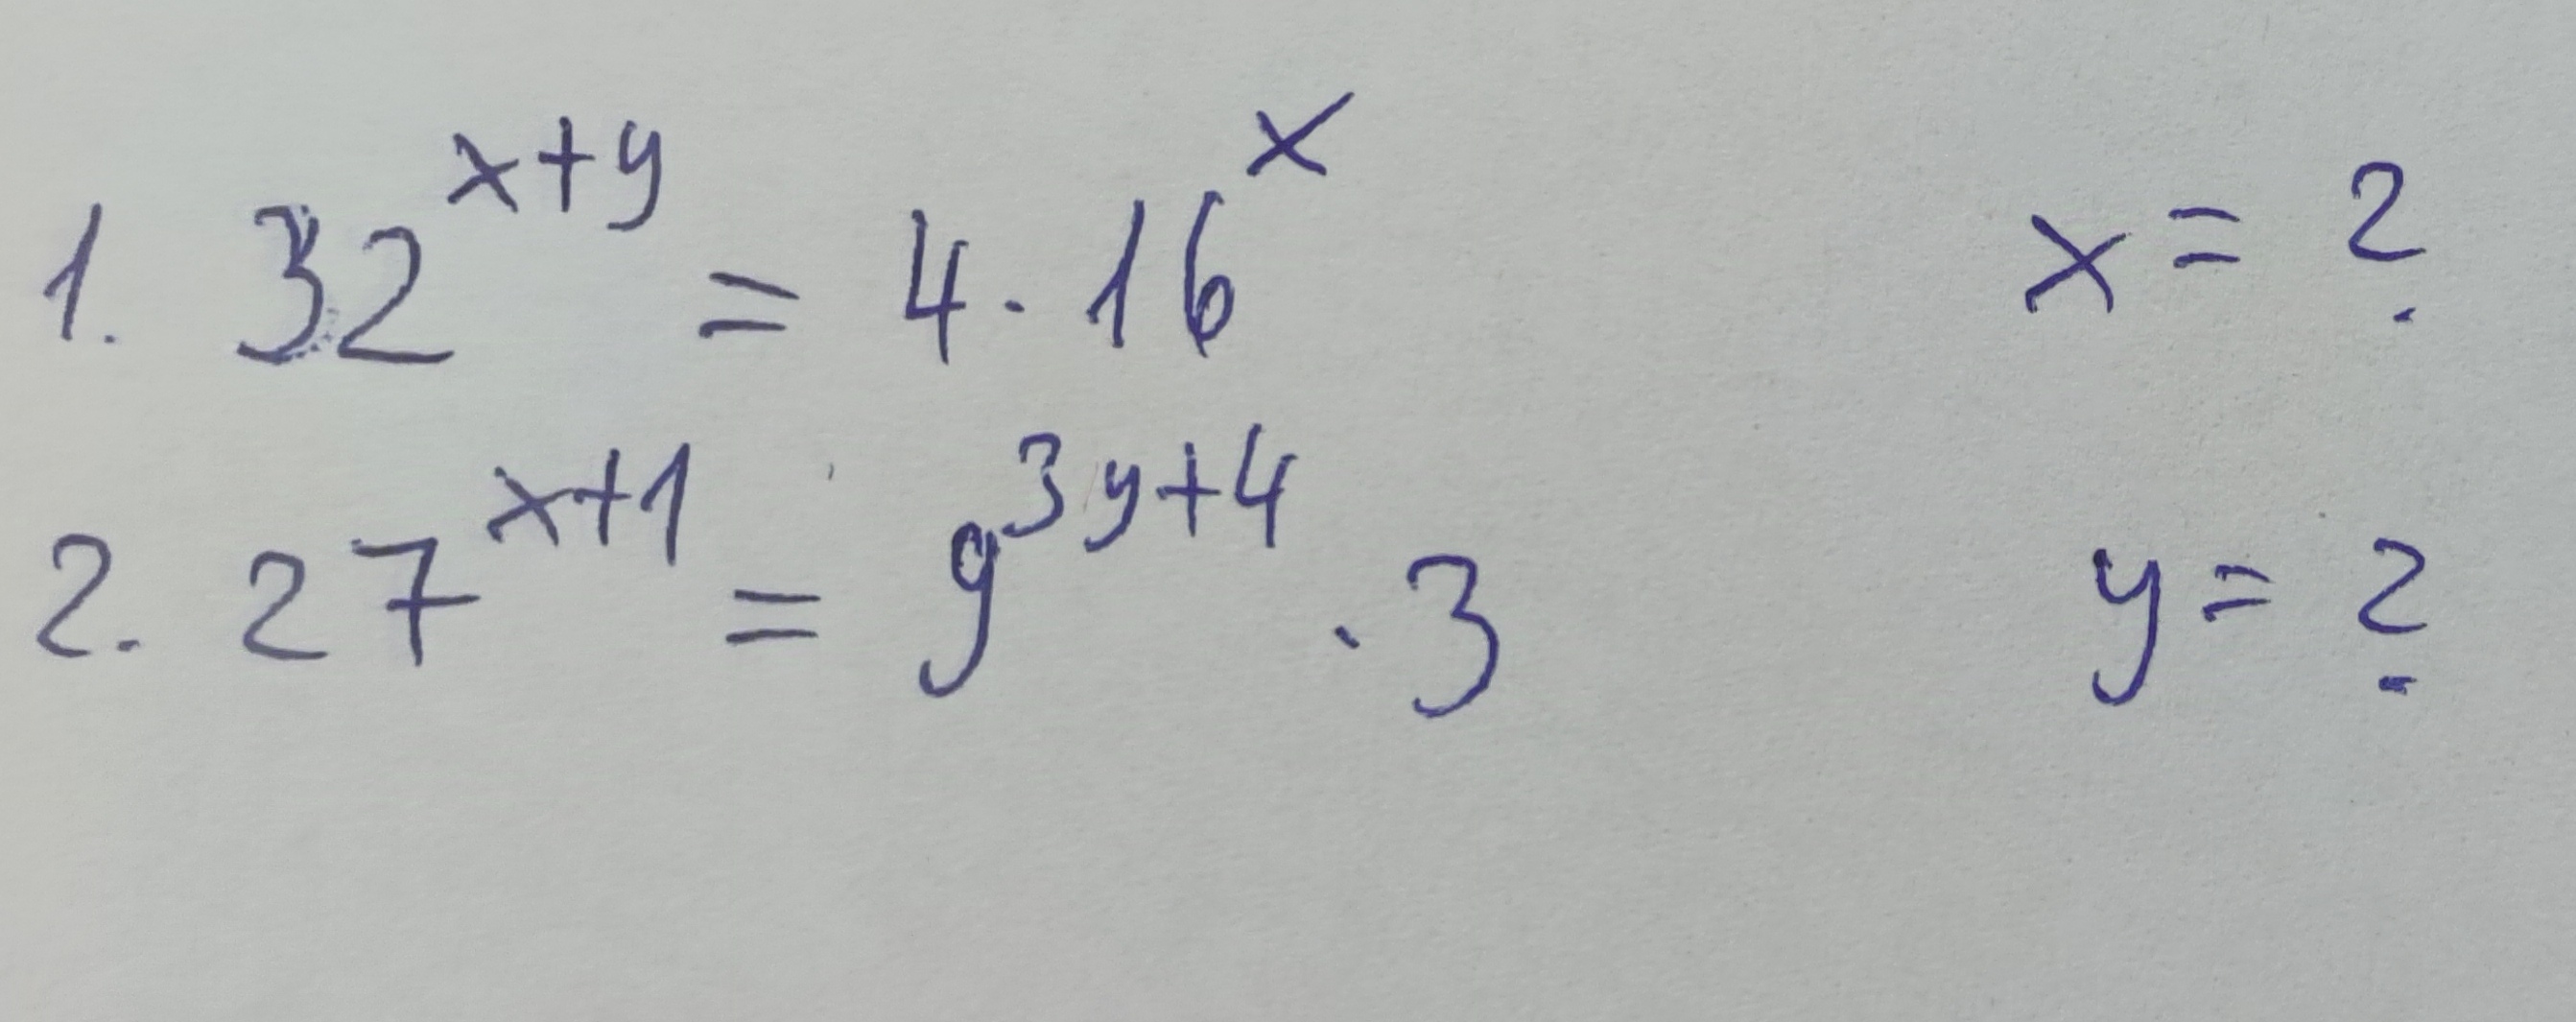 1. 32^{x+y} = 4 · 16^{x} x = ?
2. 27^{x+1} = 9^{3y+4} · 3 y = ?